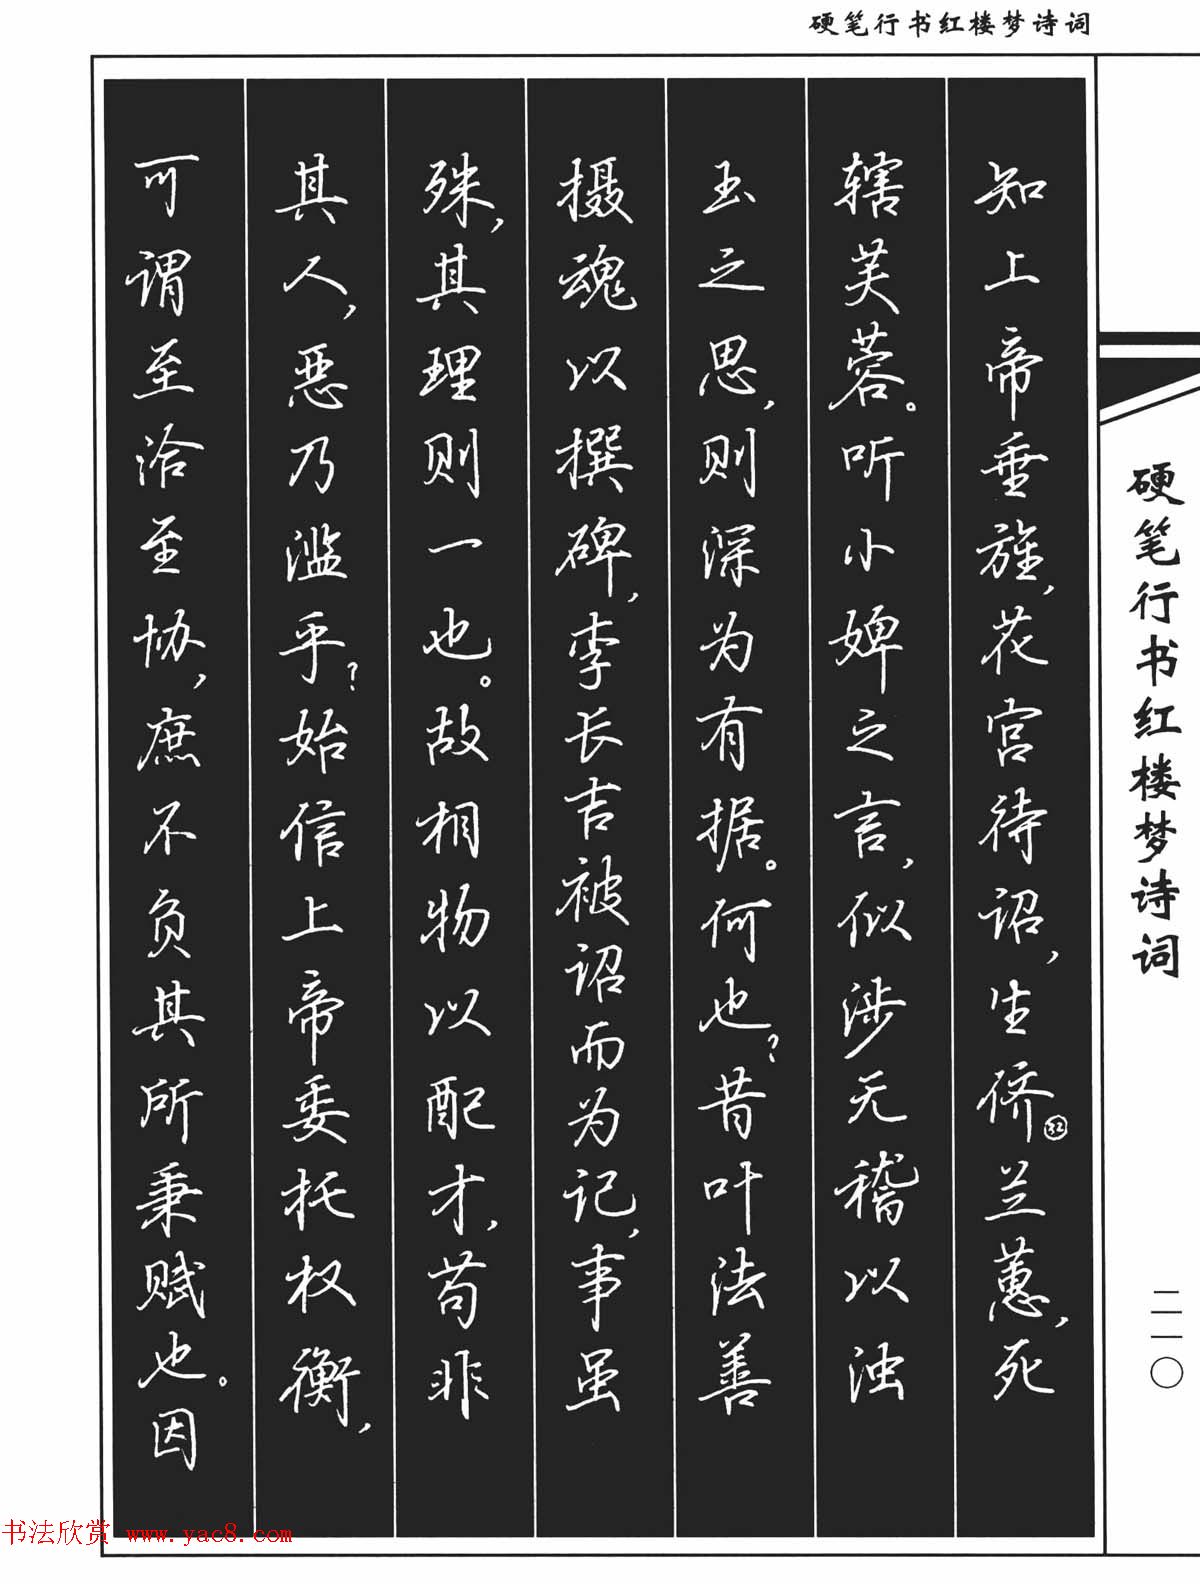 硬笔行书红楼梦诗词
知上帝垂旌,花宫待诏,生侪㉜兰蕙,死
辖芙蓉。听小婢之言,似涉无稽以浊
玉之思,则深为有据。何也?昔叶法善
摄魂以撰碑,李长吉被诏而为记,事虽
殊,其理则一也。故相物以配才,苟非
其人,恶乃滥乎?始信上帝委托权衡,
可谓至洽至协,庶不负其所秉赋也。因
硬笔行书红楼梦诗词
二一〇
书法欣赏 www.yac8.com